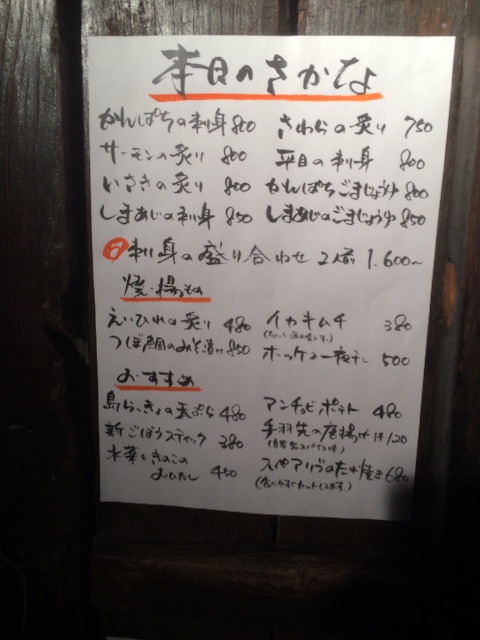 本日のさかなよ
かんぱちの刺身 800
さわらの炙り 750
サーモンの炙り 800
平目の刺身 800
いさきの炙り 800
かんぱちごまじょうゆ 800
しまあじの刺身 850
しまあじのごまじょうゆ 850
刺し身の盛り合わせ 2人前 1.600〜
焼・揚もの
えいひれの炙り 480
イカキムチ 380
つぼ鯛のみそ漬け 850
ホッケ一夜干し 500
おすすめ
島らっきょの天ぷら 480
アンチョビポテト 480
新ごぼうスティック 380
手羽先の唐揚げ 1ケ 120
水菜ときのこの
おひたし 450
スペアリブのたれ焼き 680
(食べやすくカットしてます。)